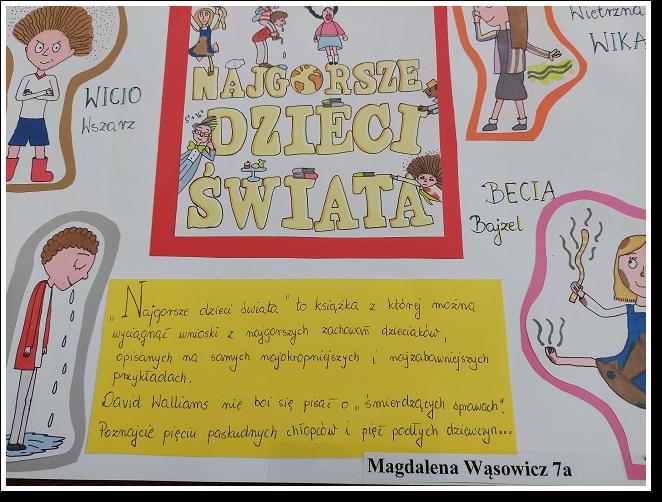 Wietrzna
WIKA
WICIO
Wszarz
NAJGORSZE
DZIECI
ŚWIATA
BECIA
Bajzel
„Najgorsze dzieci świata" to książka z której można
wyciągnąć wnioski z najgorszych zachowań dzieciaków,
opisanych na samych najokropniejszych i najzabawniejszych
przykładach.
David Walliams nie boi się pisać o „śmierdzących sprawach".
Poznajcie pięciu paskudnych chłopców i pięć podłych dziewczyn...
Magdalena Wąsowicz 7a